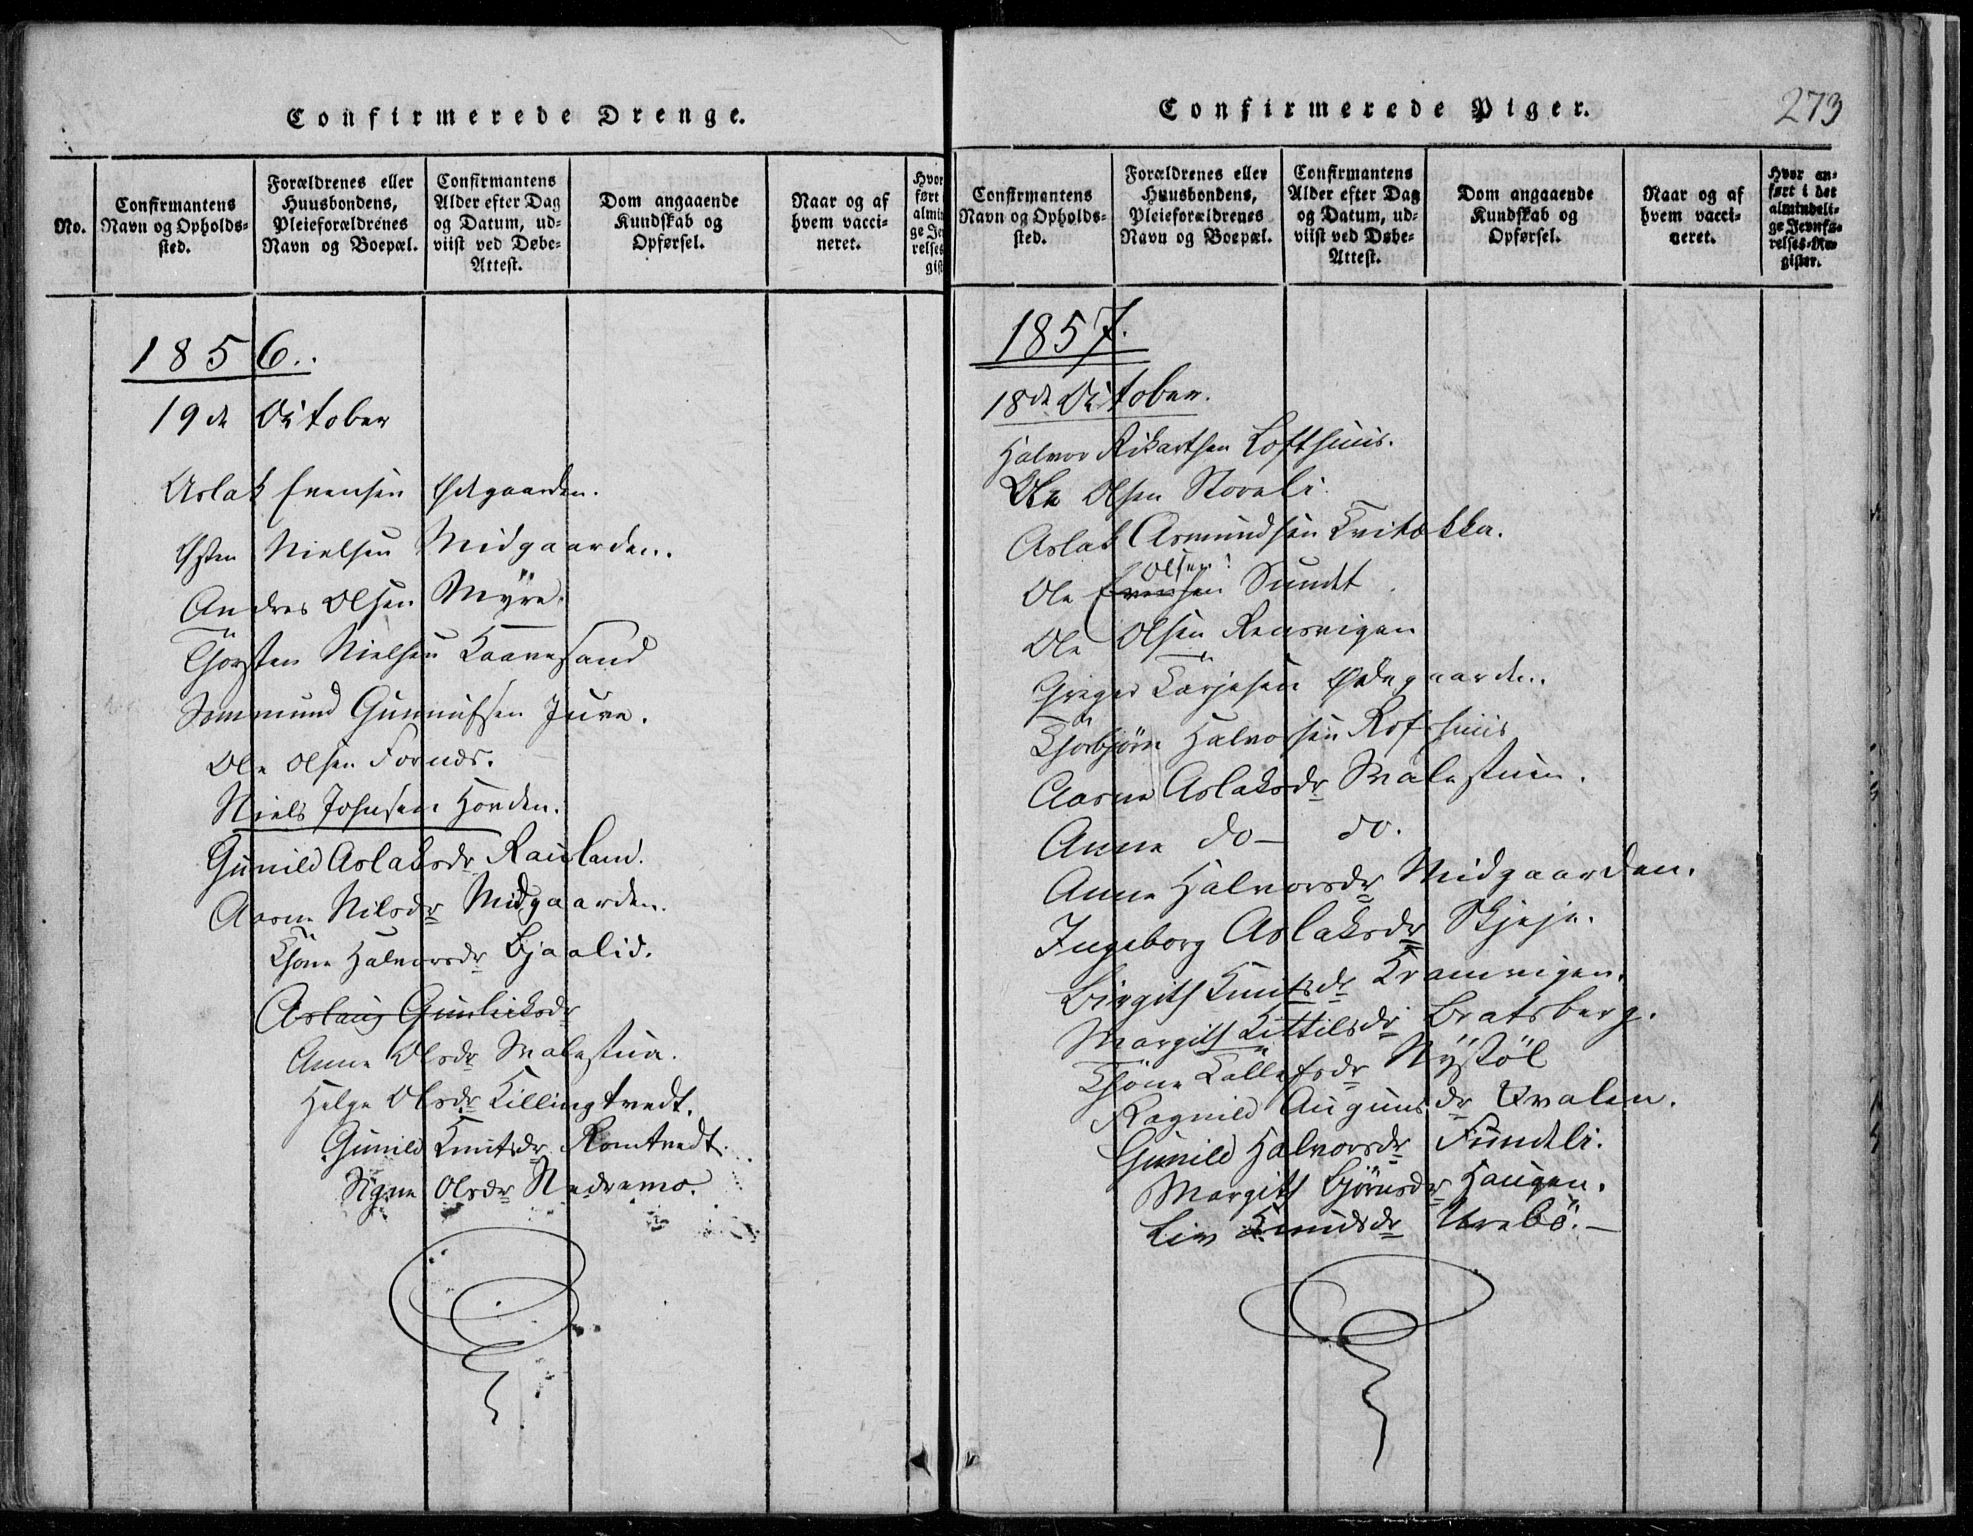 Confirmerede Drenge.
No.
Confirmantens
Navn og Opholds-
sted.
Forældrenes eller
Huusbondens,
Pleieforældrenes
Navn og Boepæl.
Confirmantens
Alder efter Dag
og Datum, ud-
viist ved Døbe-
Attest.
Dom angaaende
Kundskab og
Opførsel.
Naar og af
hvem vacci-
neret.
Hvor
ført
almin
ge Je
relses
gis
1856.
19de October
Aslak Evensen Ødegaarden.
Østen Nielsen Midgaarden.
Andres Olsen Myre.
Thorsten Nielsen Kaavesand
Sommund Gunnufsen Juve.
Ole Olsen Fornæs.
Niels Johnsen Horden.
Gunild Aslaksdr Rauland.
Aasne Nilsdr Midgaarden.
Thone Halvorsdr Bjaalid.
Aslaug Gunleiksdr
Anne Olsdr Svalestua.
Helge Olsdr Killingtvedt.
Gunild Knutsdr Romtvedt.
Signe Olsdr Nedremo.
Confirmerede Piger.
273
Confirmantens
Navn og Opholds-
sted.
Forældrenes eller
Huusbondens,
Pleieforældrenes
Navn og Boepæl.
Confirmantens
Alder efter Dag
og Datum, ud-
viist ved Døbe-
Attest.
Dom angaaende
Kundskab og
Opførsel.
Naar og af
hvem vacci-
neret.
Hvor an-
ført i det
almindeli-
ge Jevnfø-
relses-Re-
gister.
1857.
18de October.
Halvor Rikartsen Lofthuus.
Ole Olsen Storeli.
Aslak Asmundsen Kvitækka.
Olsen
Ole Evensen Sundt
Ole Olsen Rensvigen
Greger Tarjesen Ødegaarden.
Thorbjörn Halvorsen Rofshuus
Aasne Aslaksdr Svalestuen.
Anne do- do.
Anne Halvorsdr Midgaarden.
Ingeborg Aslaksdr Skjeje.
Birgith Knutsdr Kramvigen.
Margith Kittilsdr Bratsberg.
Thöne Tollefsdr Nystöl
Ragnild Augunsdr Qvalen.
Gunild Halvorsdr Fundli.
Margith Björnsdr Haugen.
Liv Knudsdr Urebö.-